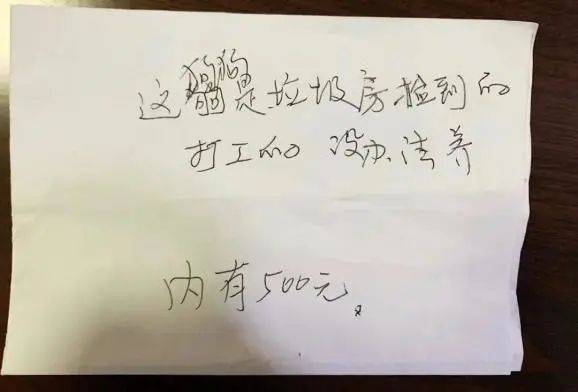 这狗狗是垃圾房捡到的
打工的 没办法养
内有500元。